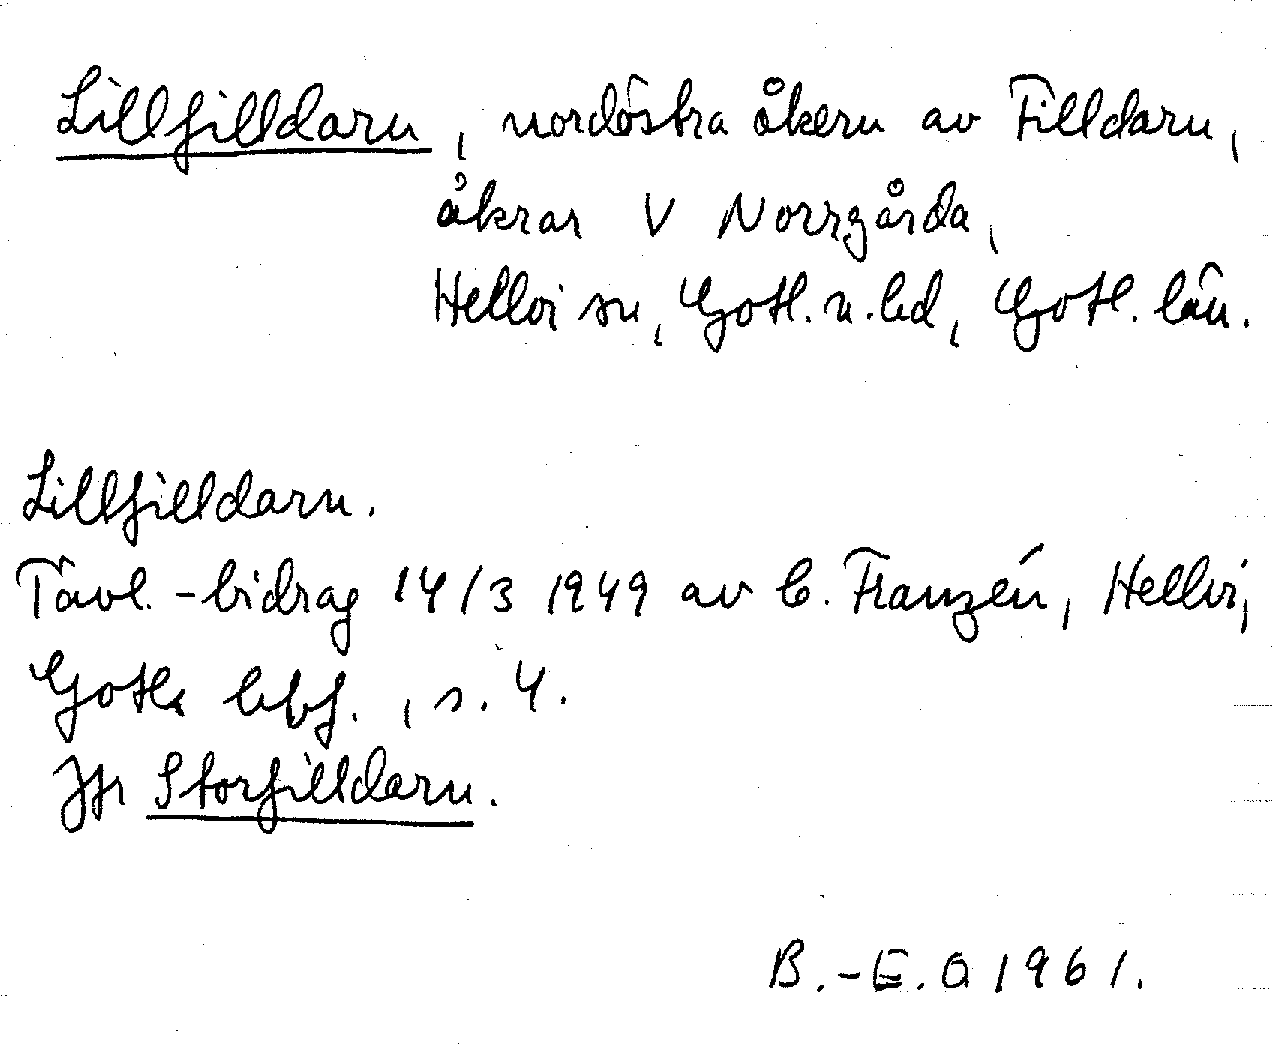 Lillfilldarn, nordöstra åkern av Filldarn,
åkrar V Norrgårda,
Hellvi sn, Gotl. n. hd, Gotl. län.
Lillfilldarn.
Tävl.-bidrag 14/3 1949 av C. Franzén, Hellvi,
Gotl. lbf., s. 4.
Jfr Storfilldarn.
B.-E. O 1961.